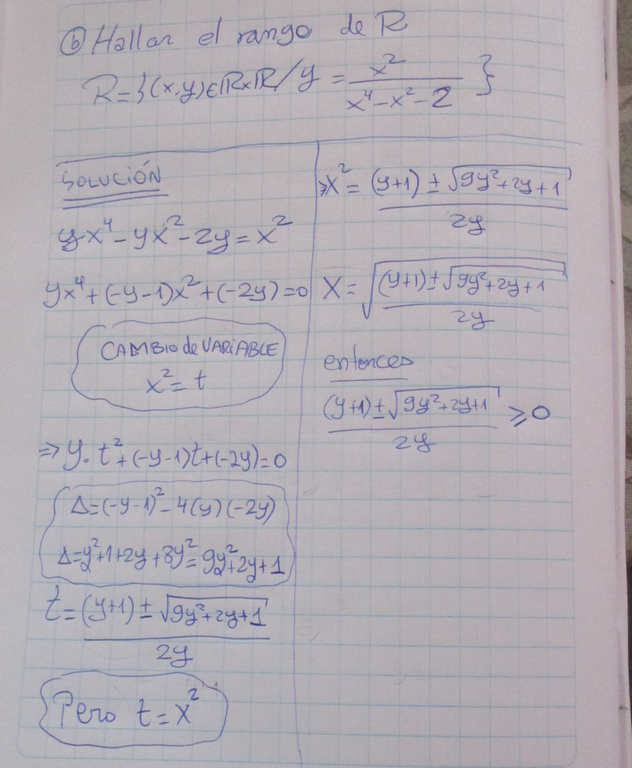 b) Hallar el rango de R
R={(x,y)∈ℝxℝ/y = x²/(x⁴-x²-2)}
SOLUCIÓN
yx⁴-yx²-2y=x²
yx⁴+(-y-1)x²+(-2y)=0
CAMBIO de VARIABLE
x²=t
⇒y.t²+(-y-1)t+(-2y)=0
Δ=(-y-1)²-4(y)(-2y)
Δ=y²+1+2y+8y²=9y²+2y+1
t=((y+1)±√(9y²+2y+1))/2y
Pero t=x²
⇒x²=((y+1)±√(9y²+2y+1))/2y
X=√(((y+1)±√(9y²+2y+1))/2y)
entonces
((y+1)±√(9y²+2y+1))/2y ≥0